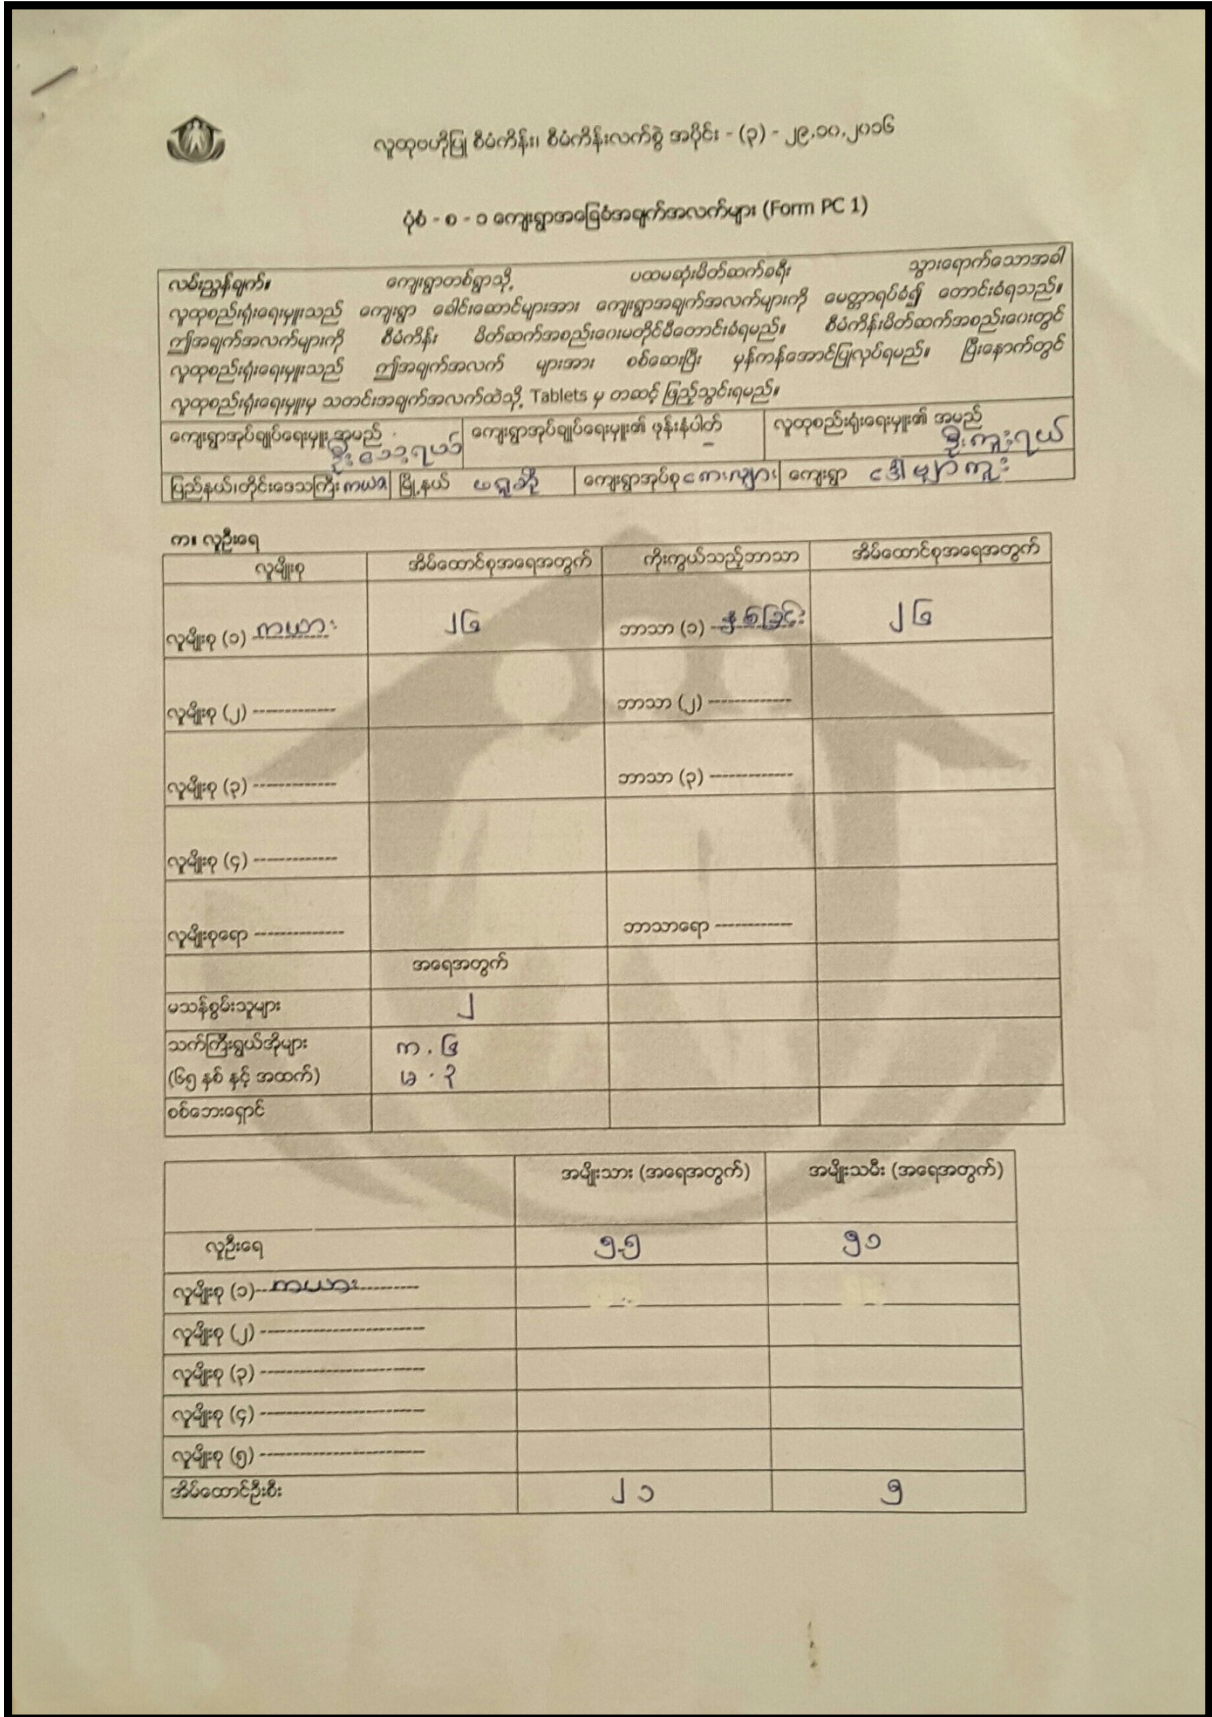 လူထုဗဟိုပြု စီမံကိန်း၊ စီမံကိန်းလက်စွဲ အပိုင်း - (၃) - ၂၉.၁၀.၂၀၁၆
ပုံစံ - စ - ၁ ကျေးရွာအခြေခံအချက်အလက်များ (Form PC 1)
လမ်းညွှန်ချက်။ ကျေးရွာတစ်ရွာသို့ ပထမဆုံးမိတ်ဆက်ခရီး သွားရောက်သောအခါ
လူထုစည်းရုံးရေးမှူးသည် ကျေးရွာ ခေါင်းဆောင်များအား ကျေးရွာအချက်အလက်များကို မေတ္တာရပ်ခံ၍ တောင်းခံရသည်။
ဤအချက်အလက်များကို စီမံကိန်း မိတ်ဆက်အစည်းဝေးမတိုင်မီတောင်းခံရမည်။ စီမံကိန်းမိတ်ဆက်အစည်းဝေးတွင်
လူထုစည်းရုံးရေးမှူးသည် ဤအချက်အလက် များအား စစ်ဆေးပြီး မှန်ကန်အောင်ပြုလုပ်ရမည်။ ပြီးနောက်တွင်
လူထုစည်းရုံးရေးမှူးမှ သတင်းအချက်အလက်ထဲသို့ Tablets မှ တဆင့် ဖြည့်သွင်းရမည်။
ကျေးရွာအုပ်ချုပ်ရေးမှူး အမည် ကျေးရွာအုပ်ချုပ်ရေးမှူး၏ ဖုန်းနံပါတ် - လူထုစည်းရုံးရေးမှူး၏ အမည်
ဦးကူးရယ်
ပြည်နယ်၊တိုင်းဒေသကြီး ကယား မြို့နယ် ဖရူဆို ကျေးရွာအုပ်စု ကျေးရွာ
က။ လူဦးရေ
လူမျိုးစု အိမ်ထောင်စုအရေအတွက် ကိုးကွယ်သည့်ဘာသာ အိမ်ထောင်စုအရေအတွက်
လူမျိုးစု (၁) ကယား ၂၆ ဘာသာ (၁) နှစ်ခြင်း ၂၆
လူမျိုးစု (၂) ------------- ဘာသာ (၂) -------------
လူမျိုးစု (၃) ------------- ဘာသာ (၃) -------------
လူမျိုးစု (၄) -------------
လူမျိုးစုရော ------------- ဘာသာရော -------------
အရေအတွက်
မသန်စွမ်းသူများ ၂
သက်ကြီးရွယ်အိုများ က . ၆
(၆၅ နှစ် နှင့် အထက်) မ . ၃
စစ်ဘေးရှောင်
အမျိုးသား (အရေအတွက်) အမျိုးသမီး (အရေအတွက်)
လူဦးရေ ၅၅ ၅၁
လူမျိုးစု (၁) ကယား
လူမျိုးစု (၂) -------------------------
လူမျိုးစု (၃) -------------------------
လူမျိုးစု (၄) -------------------------
လူမျိုးစု (၅) -------------------------
အိမ်ထောင်ဦးစီး ၂၁ ၅